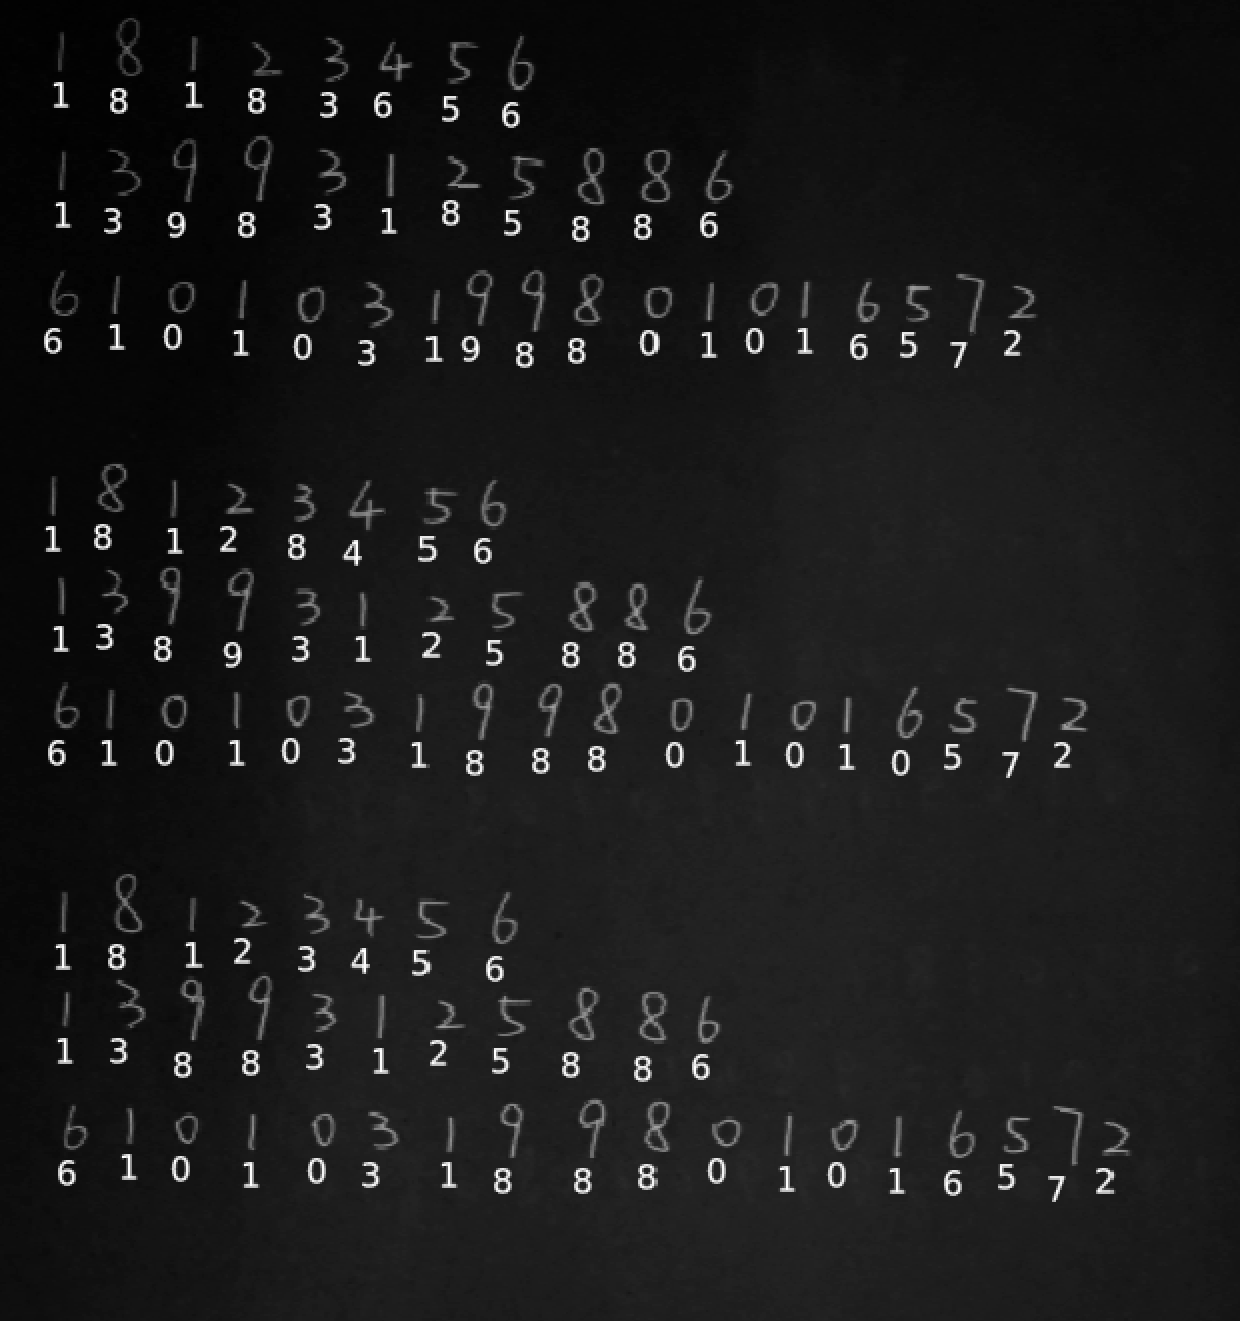 1 8 1 2 3 4 5 6
1 8 1 8 3 6 5 6
1 3 9 9 3 1 2 5 8 8 6
1 3 9 8 3 1 8 5 8 8 6
6 1 0 1 0 3 1 9 9 8 0 1 0 1 6 5 7 2
6 1 0 1 0 3 1 9 8 8 0 1 0 1 6 5 7 2
1 8 1 2 3 4 5 6
1 8 1 2 8 4 5 6
1 3 9 9 3 1 2 5 8 8 6
1 3 8 9 3 1 2 5 8 8 6
6 1 0 1 0 3 1 9 9 8 0 1 0 1 6 5 7 2
6 1 0 1 0 3 1 8 8 8 0 1 0 1 0 5 7 2
1 8 1 2 3 4 5 6
1 8 1 2 3 4 5 6
1 3 9 9 3 1 2 5 8 8 6
1 3 8 8 3 1 2 5 8 8 6
6 1 0 1 0 3 1 9 9 8 0 1 0 1 6 5 7 2
6 1 0 1 0 3 1 8 8 8 0 1 0 1 6 5 7 2